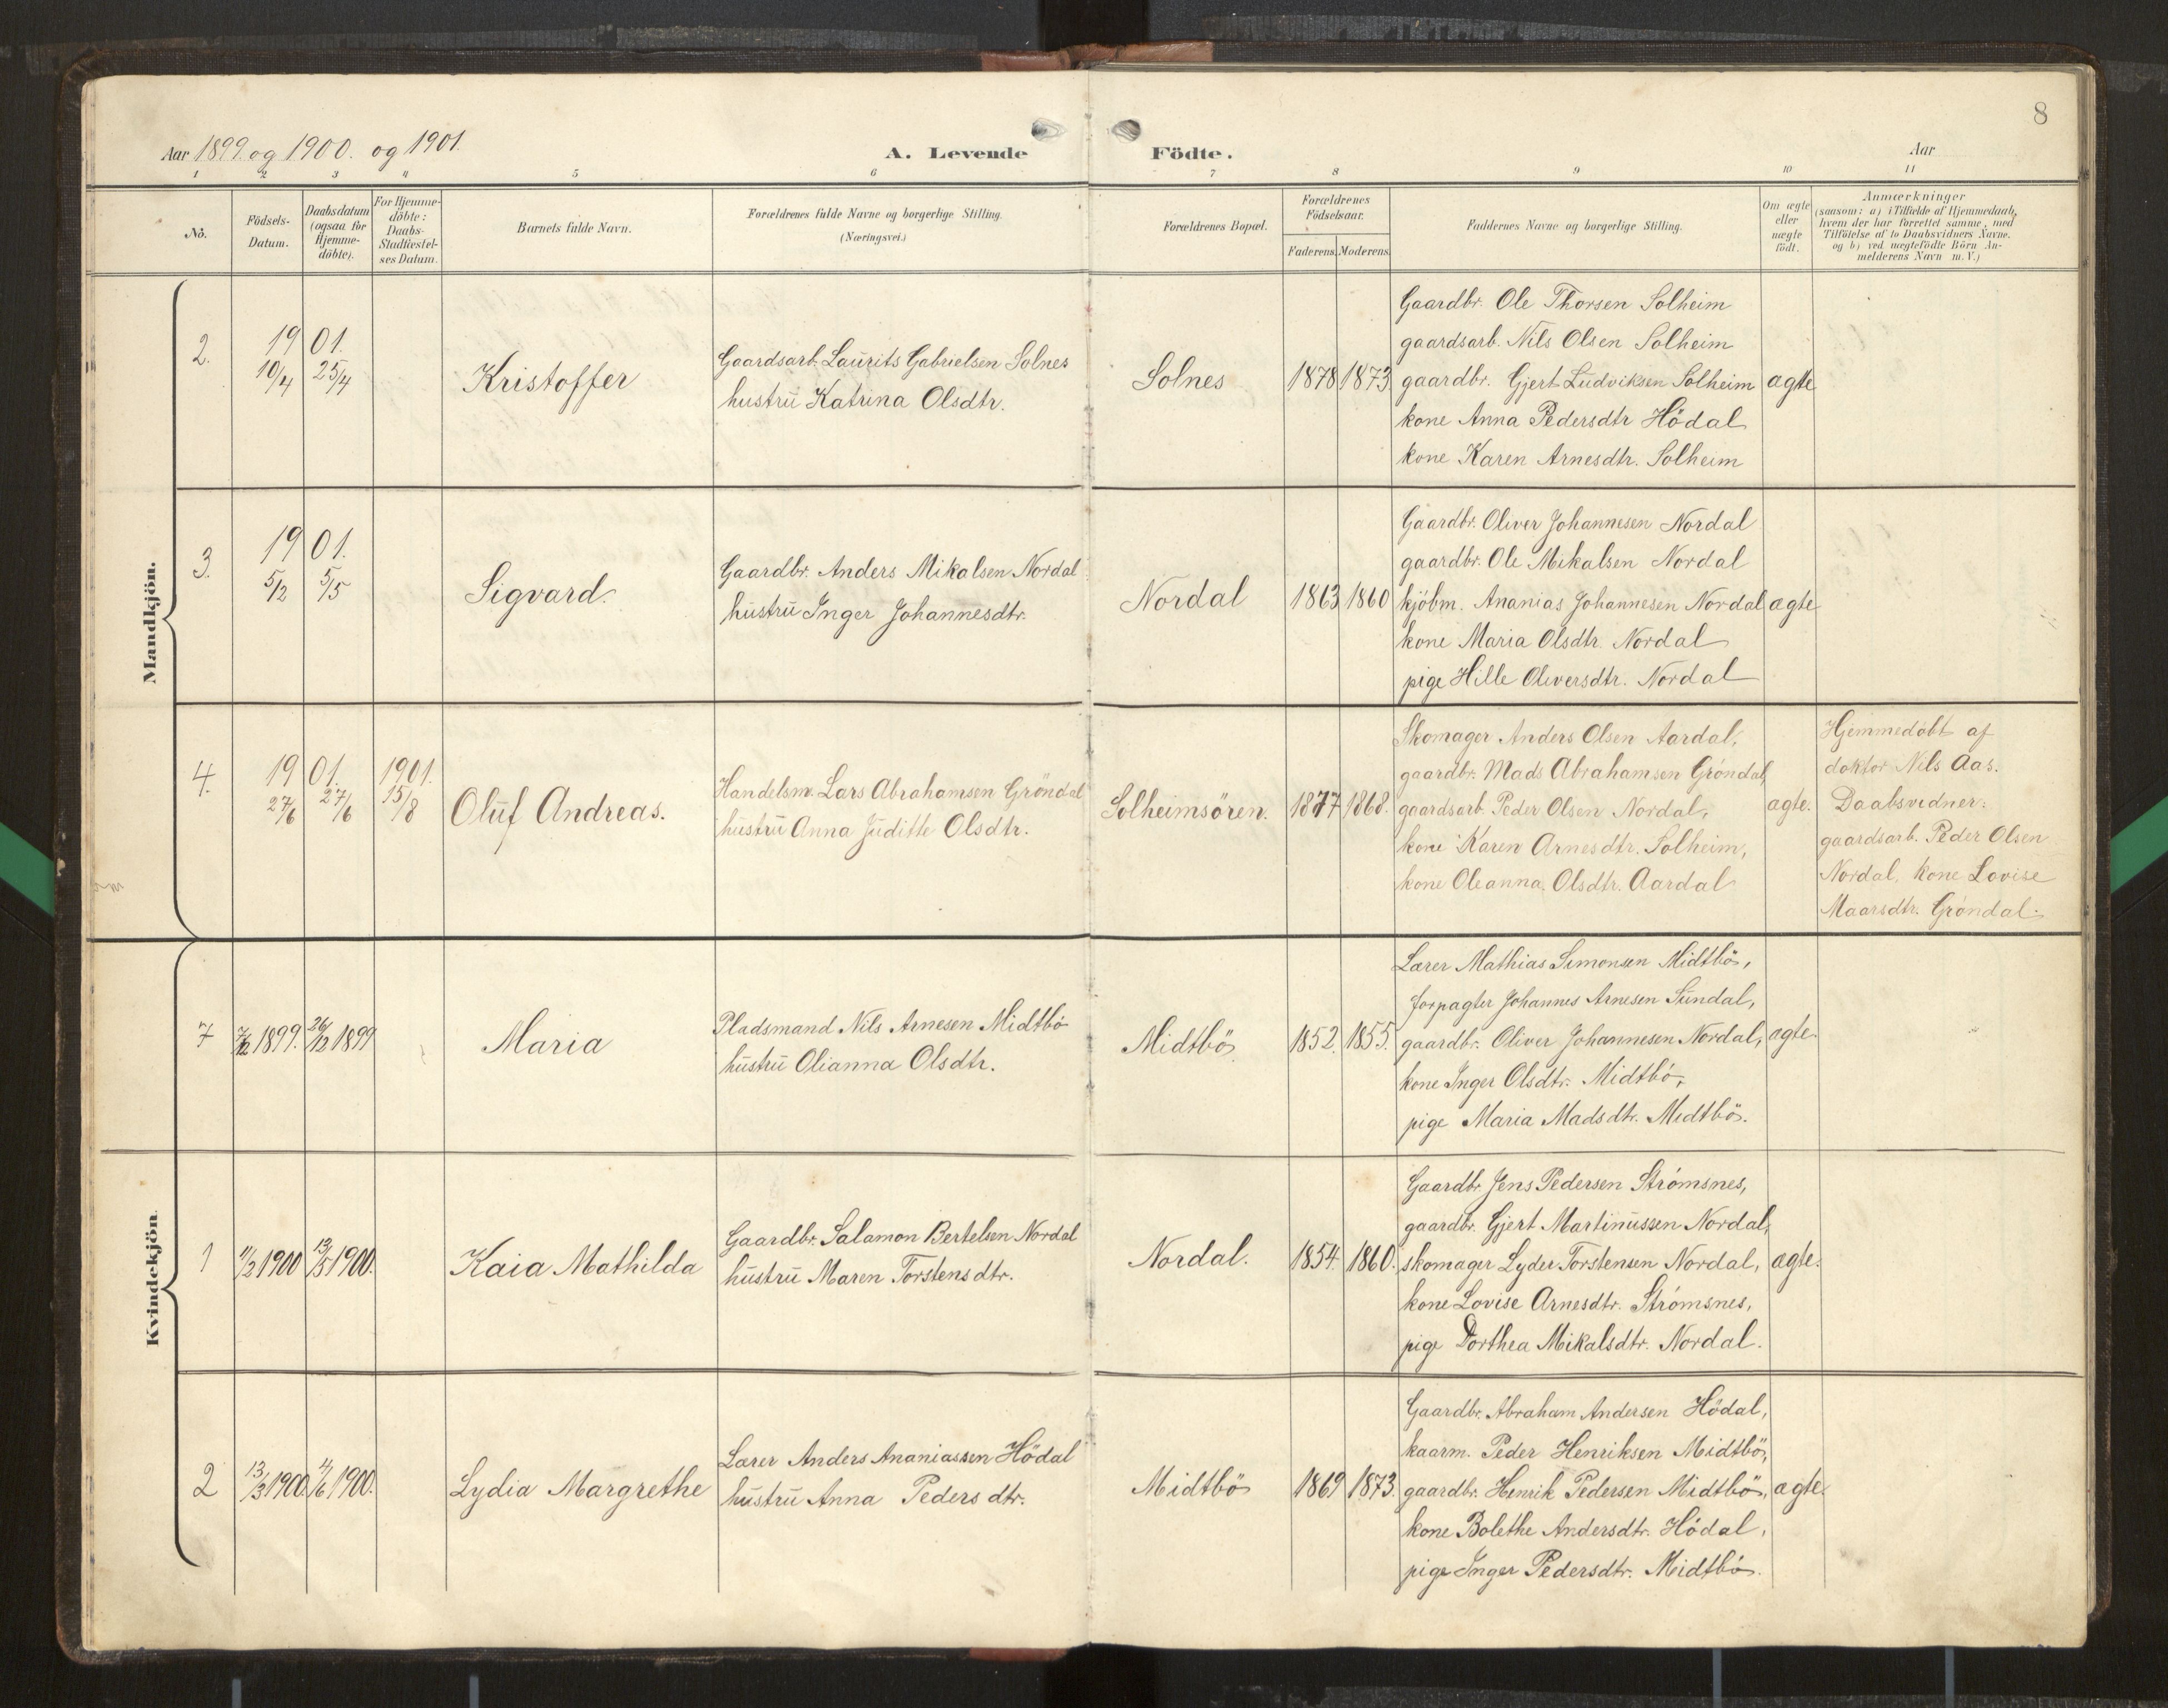 8
Aar 1899. og 1900. og 1901.
A. Levende Födte.
Aar
1 2 3 4 5 6 7 8 9 10 11
No.
Födsels-
Datum.
Daabsdatum
(ogsaa for
Hjemme-
döbte).
For Hjemme-
döbte:
Daabs-
Stadfæstel-
ses Datum.
Barnets fulde Navn.
Forældrenes fulde Navne og borgerlige Stilling.
(Næringsvei.)
Forældrenes Bopæl.
Forældrenes
Födselsaar.
Faderens. Moderens.
Faddernes Navne og borgerlige Stilling.
Om ægte
eller
uægte
födt.
Anmærkninger
(saasom: a) i Tilfælde af Hjemmedaab,
hvem der har forrettet samme, med
Tilföielse af to Daabsvidners Navne.
og b) ved uægtefödte Börn An-
melderens Navn m.V.)
Mandkjön.
2.
1901.
10/4 25/4
Kristoffer
Gaardsarb. Laurits Gabrielsen Solnes
hustru Katrina Olsdtr.
Solnes
1878 1873
Gaardbr. Ole Thorsen Solheim
gaardsarb. Nils Olsen Solheim
gaardbr. Gjert Ludviksen Solheim
kone Anna Pedersdtr Hödal
kone Karen Arnesdtr. Solheim
ægte
3.
1901.
5/2 5/5
Sigvard.
Gaardbr. Anders Mikalsen Nordal
hustru Inger Johannesdtr.
Nordal
1863 1860
Gaardbr. Oliver Johannesen Nordal
gaardbr. Ole Mikalsen Nordal
kjöbm. Ananias Johannesen Nordal
kone Maria Olsdtr. Nordal
pige Hille Oliversdtr. Nordal
ægte
4.
1901.
27/6 27/6
1901.
15/8
Oluf Andreas.
Handelsm. Lars Abrahamsen Gröndal
hustru Anna Juditte Olsdtr.
Solheimsören.
1877 1868.
Skomager Anders Olsen Aardal,
gaardbr. Mads Abrahamsen Gröndal,
gaardsarb. Peder Olsen Nordal,
kone Karen Arnesdtr. Solheim,
kone Oleanna Olsdtr. Aardal
ægte.
Hjemmedöbt af
doktor Nils Aas.
Daabsvidner:
gaardsarb. Peder Olsen
Nordal, kone Lovise
Maarsdtr. Gröndal.
Kvindekjön.
7
7/12 1899. 26/12 1899
Maria
Pladsmand Nils Arnesen Midtbö
hustru Olianna Olsdtr.
Midtbö
1852. 1855.
Lærer Mathias Simonsen Midtbö,
forpagter Johannes Arnesen Sundal,
gaardbr. Oliver Johannesen Nordal,
kone Inger Olsdtr. Midtbö,
pige Maria Madsdtr. Midtbö.
ægte.
1
11/2 1900 13/5 1900.
Kaia Mathilda
Gaardbr. Salamon Bertelsen Nordal
hustru Maren Torstensdtr.
Nordal.
1854. 1860.
Gaardbr. Jens Pedersen Strömsnes,
gaardbr. Gjert Martinussen Nordal,
skomager Lyder Torstensen Nordal,
kone Lovise Arnesdtr. Strömsnes,
pige Dorthea Mikalsdtr. Nordal.
ægte.
2
13/3 1900. 4/6 1900.
Lydia Margrethe
Lærer Anders Ananiassen Hödal
hustru Anna Pedersdtr.
Midtbö
1869 1873.
Gaardbr. Abraham Andersen Hödal,
kaarm. Peder Henriksen Midtbö,
gaardbr. Henrik Pedersen Midtbö,
kone Bolethe Andersdtr. Hödal,
pige Inger Pedersdtr. Midtbö.
ægte.